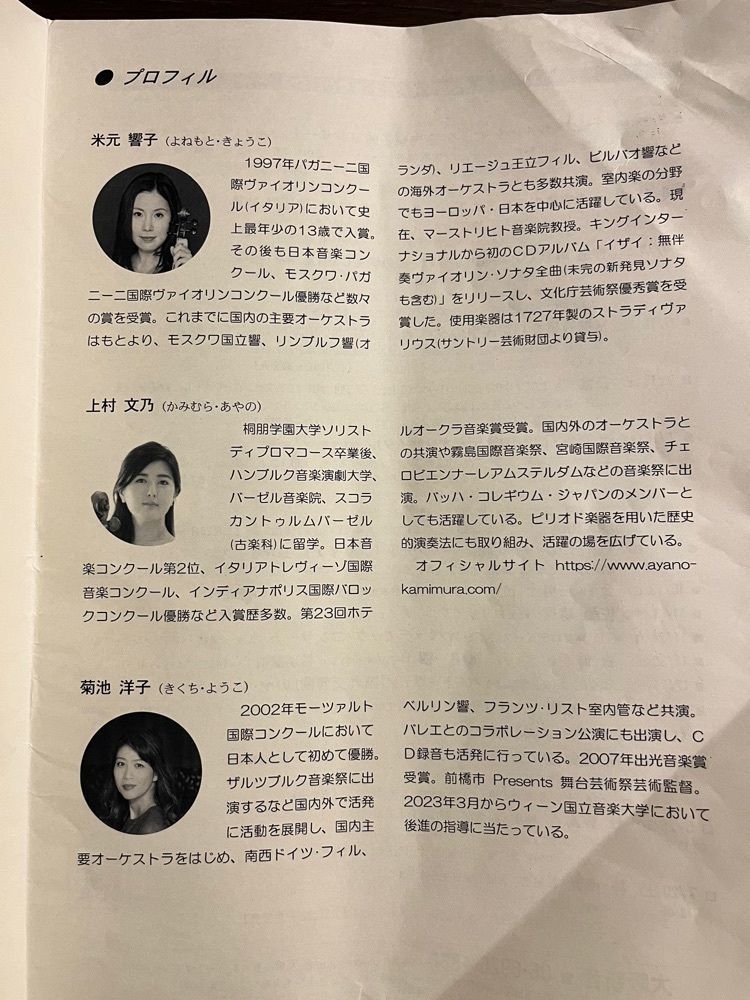 ● プロフィル
米元 響子 (よねもと・きょうこ)
1997年パガニーニ国
際ヴァイオリンコンクー
ル(イタリア)において史
上最年少の13歳で入賞。
その後も日本音楽コン
クール、モスクワ・パガ
ニーニ国際ヴァイオリンコンクール優勝など数々
の賞を受賞。これまでに国内の主要オーケストラ
はもとより、モスクワ国立響、リンブルフ響(オ
ランダ)、リエージュ王立フィル、ビルバオ響など
の海外オーケストラとも多数共演。室内楽の分野
でもヨーロッパ・日本を中心に活躍している。現
在、マーストリヒト音楽院教授。キングインター
ナショナルから初のCDアルバム「イザイ：無伴
奏ヴァイオリン・ソナタ全曲(未完の新発見ソナタ
も含む)」をリリースし、文化庁芸術祭優秀賞を受
賞した。使用楽器は1727年製のストラディヴァ
リウス(サントリー芸術財団より貸与)。
上村 文乃 (かみむら・あやの)
桐朋学園大学ソリスト
ディプロマコース卒業後、
ハンブルク音楽演劇大学、
バーゼル音楽院、スコラ
カントゥルムバーゼル
(古楽科)に留学。日本音
楽コンクール第2位、イタリアトレヴィーゾ国際
音楽コンクール、インディアナポリス国際バロッ
クコンクール優勝など入賞歴多数。第23回ホテ
ルオークラ音楽賞受賞。国内外のオーケストラと
の共演や霧島国際音楽祭、宮崎国際音楽祭、チェ
ロビエンナーレアムステルダムなどの音楽祭に出
演。バッハ・コレギウム・ジャパンのメンバーと
しても活躍している。ピリオド楽器を用いた歴史
的演奏法にも取り組み、活躍の場を広げている。
オフィシャルサイト https://www.ayano-
kamimura.com/
菊池 洋子 (きくち・ようこ)
2002年モーツァルト
国際コンクールにおいて
日本人として初めて優勝。
ザルツブルク音楽祭に出
演するなど国内外で活発
に活動を展開し、国内主
要オーケストラをはじめ、南西ドイツ・フィル、
ベルリン響、フランツ・リスト室内管など共演。
バレエとのコラボレーション公演にも出演し、C
D録音も活発に行っている。2007年出光音楽賞
受賞。前橋市 Presents 舞台芸術祭芸術監督。
2023年3月からウィーン国立音楽大学において
後進の指導に当たっている。